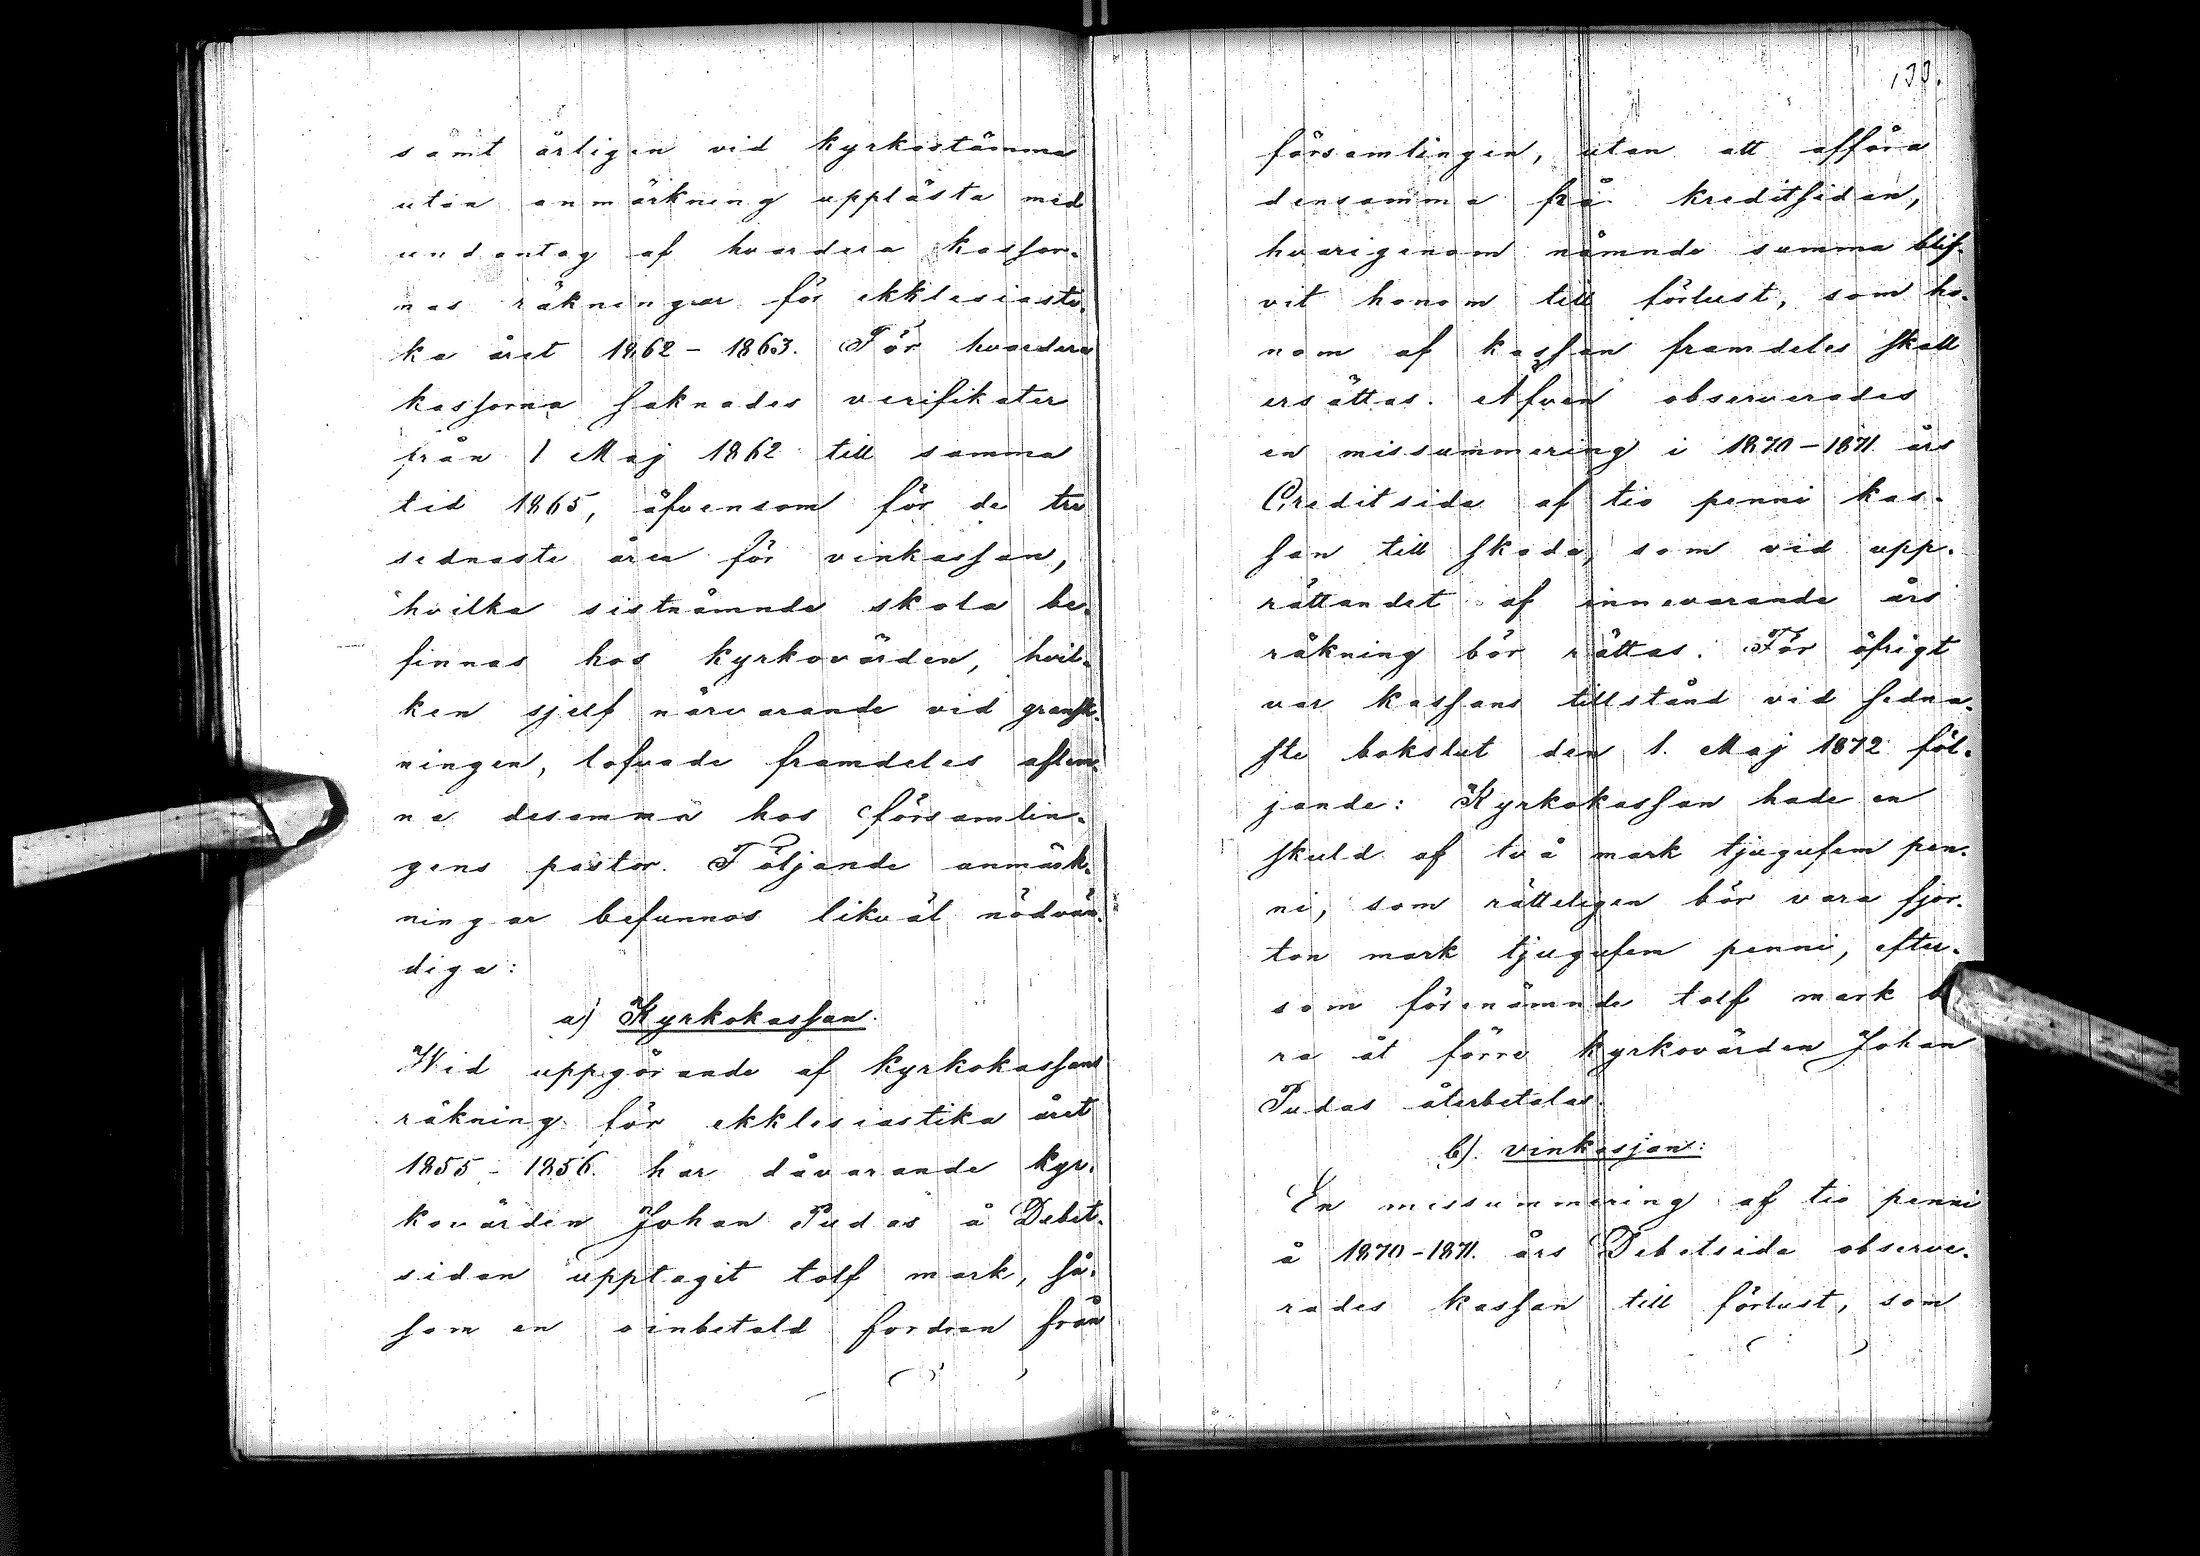 samt årligen vid kyrkostämma
utan anmärkning upplästa med
undantag af hvardera kassor-
nas räkningar för ekklesiasti-
ka året 1862 - 1863. För hvardera
kassorna saknades verifikater
från 1 Maj 1862 till samma
tid 1865, äfvensom för de tre
sednaste åren för vinkassan,
hvilka sistnämnde skola be-
finnas hos kyrkovärden, hvil-
ken sjelf närvarande vid gransk-
ningen, lofvade framdeles aflem-
na desamma hos församlin-
gens pastor. Följande anmärk-
ningar befunnos likväl nödvän-
diga:
a) Kyrkokassan.
Wid uppgörande af kyrkokassans
räkning för ekklesiastika året
1855 - 1856. har dåvarande kyr-
kovärden Johan Pudas å Debet-
sidan upptagit tolf mark, så-
som en oinbetald fordran från
133.
församlingen, utan att afföra
densamma frå kreditsidan,
hvarigenom nämnde summa blif-
vit honom till förlust, som ho-
nom af kassan framdeles skall
ersättas. Afven observerades
en missummering i 1870 - 1871 års
Creditside af tio penni kas-
san till skada, som vid upp-
rättandet af innevarande års
räkning bör rättas. För öfrigt
var kassans tillstånd vid sedna-
ste bokslut den 1. Maj 1872 föl-
jande: Kyrkokassan hade en
skuld af två mark tjugufem pen-
ni, som rätteligen bör vara fjor-
ton mark tjugufem penni, efter-
som förenämnde tolf mark
ra åt förre kyrkovärden Johan
Pudas återbetalas.
b). vinkassan:
En missummering af tio penni
å 1870 - 1871. års Debetside observe-
rades kassan till förlust, som